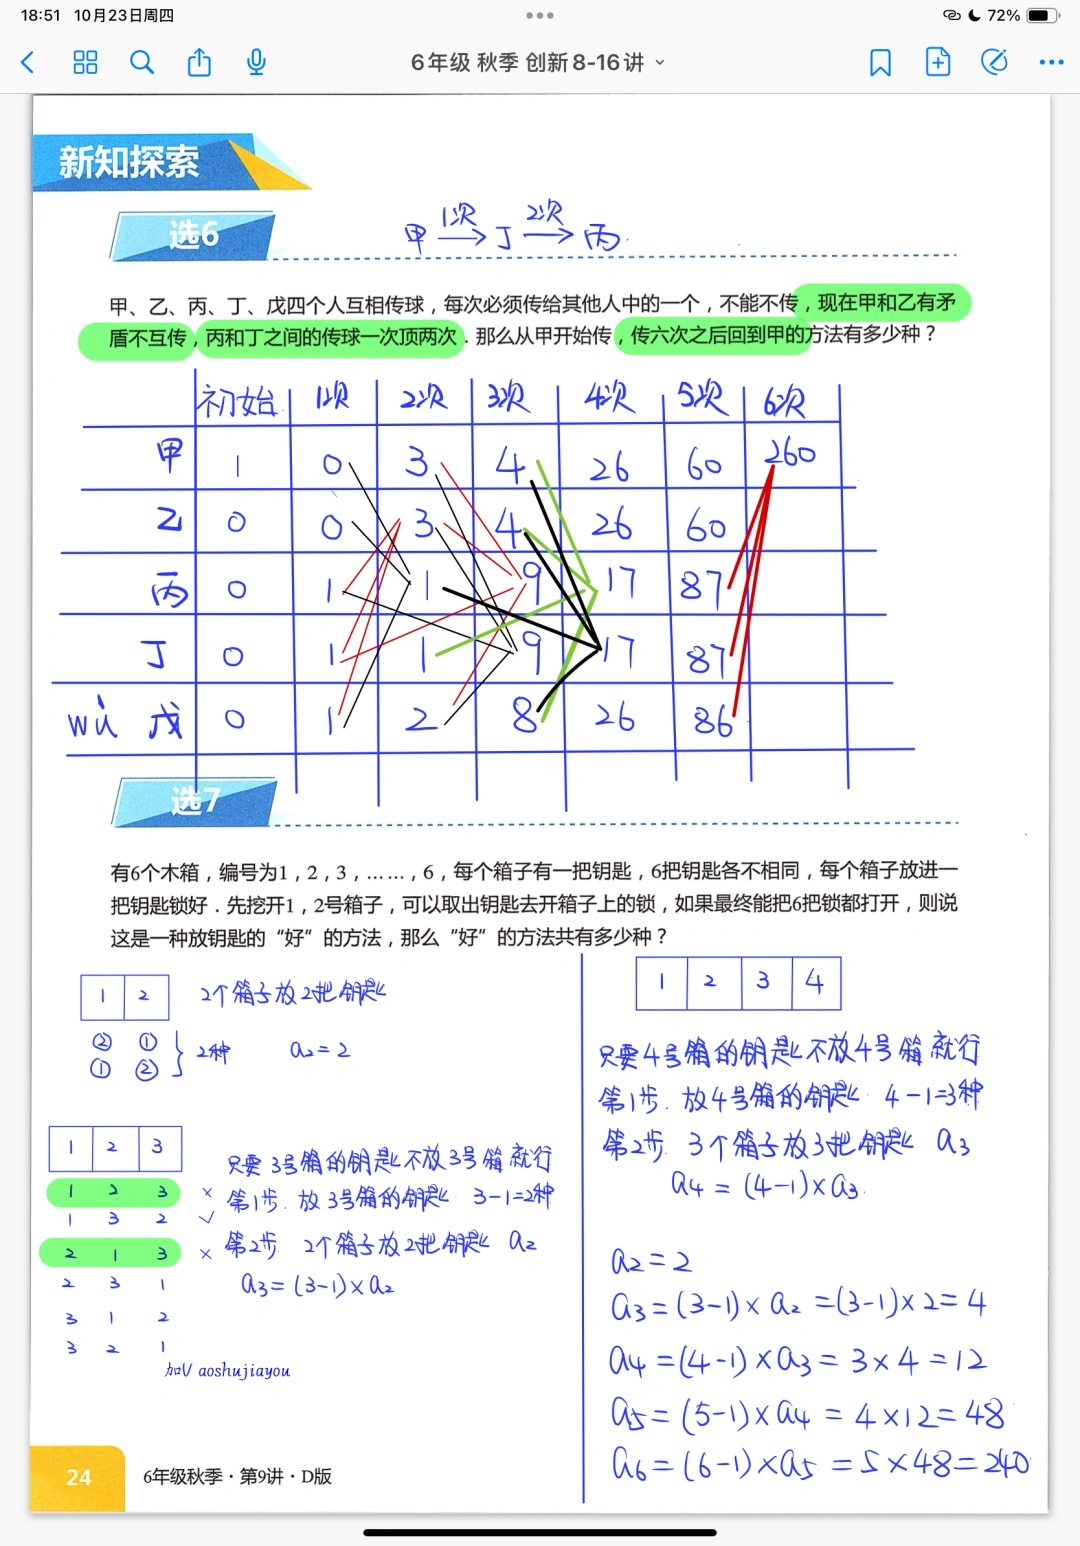 18:51 10月23日周四
72%
6年级 秋季 创新8-16讲
新知探索
选6
甲 1次→ 丁 2次→ 丙
甲、乙、丙、丁、戊四个人互相传球，每次必须传给其他人中的一个，不能不传，现在甲和乙有矛
盾不互传，丙和丁之间的传球一次顶两次．那么从甲开始传，传六次之后回到甲的方法有多少种？
初始 1次 2次 3次 4次 5次 6次
甲 1 0 3 4 26 60 260
乙 0 0 3 4 26 60
丙 0 1 1 9 17 87
丁 0 1 1 9 17 87
wù 戊 0 1 2 8 26 86
选7
有6个木箱，编号为1，2，3，……，6，每个箱子有一把钥匙，6把钥匙各不相同，每个箱子放进一
把钥匙锁好．先挖开1，2号箱子，可以取出钥匙去开箱子上的锁，如果最终能把6把锁都打开，则说
这是一种放钥匙的“好”的方法，那么“好”的方法共有多少种？
1 2 2个箱子放2把钥匙
② ①
① ② } 2种 a₂=2
1 2 3
只要3号箱的钥匙不放3号箱就行
1 2 3 × 第1步.放3号箱的钥匙 3-1=2种
1 3 2 ✓
2 1 3 × 第2步 2个箱子放2把钥匙 a₂
2 3 1 a₃=(3-1)×a₂
3 1 2
3 2 1
加V aoshujiayou
1 2 3 4
只要4号箱的钥匙不放4号箱就行
第1步.放4号箱的钥匙 4-1=3种
第2步 3个箱子放3把钥匙 a₃
a₄=(4-1)×a₃.
a₂=2
a₃=(3-1)×a₂=(3-1)×2=4
a₄=(4-1)×a₃=3×4=12
a₅=(5-1)×a₄=4×12=48
a₆=(6-1)×a₅=5×48=240
24 6年级秋季·第9讲·D版